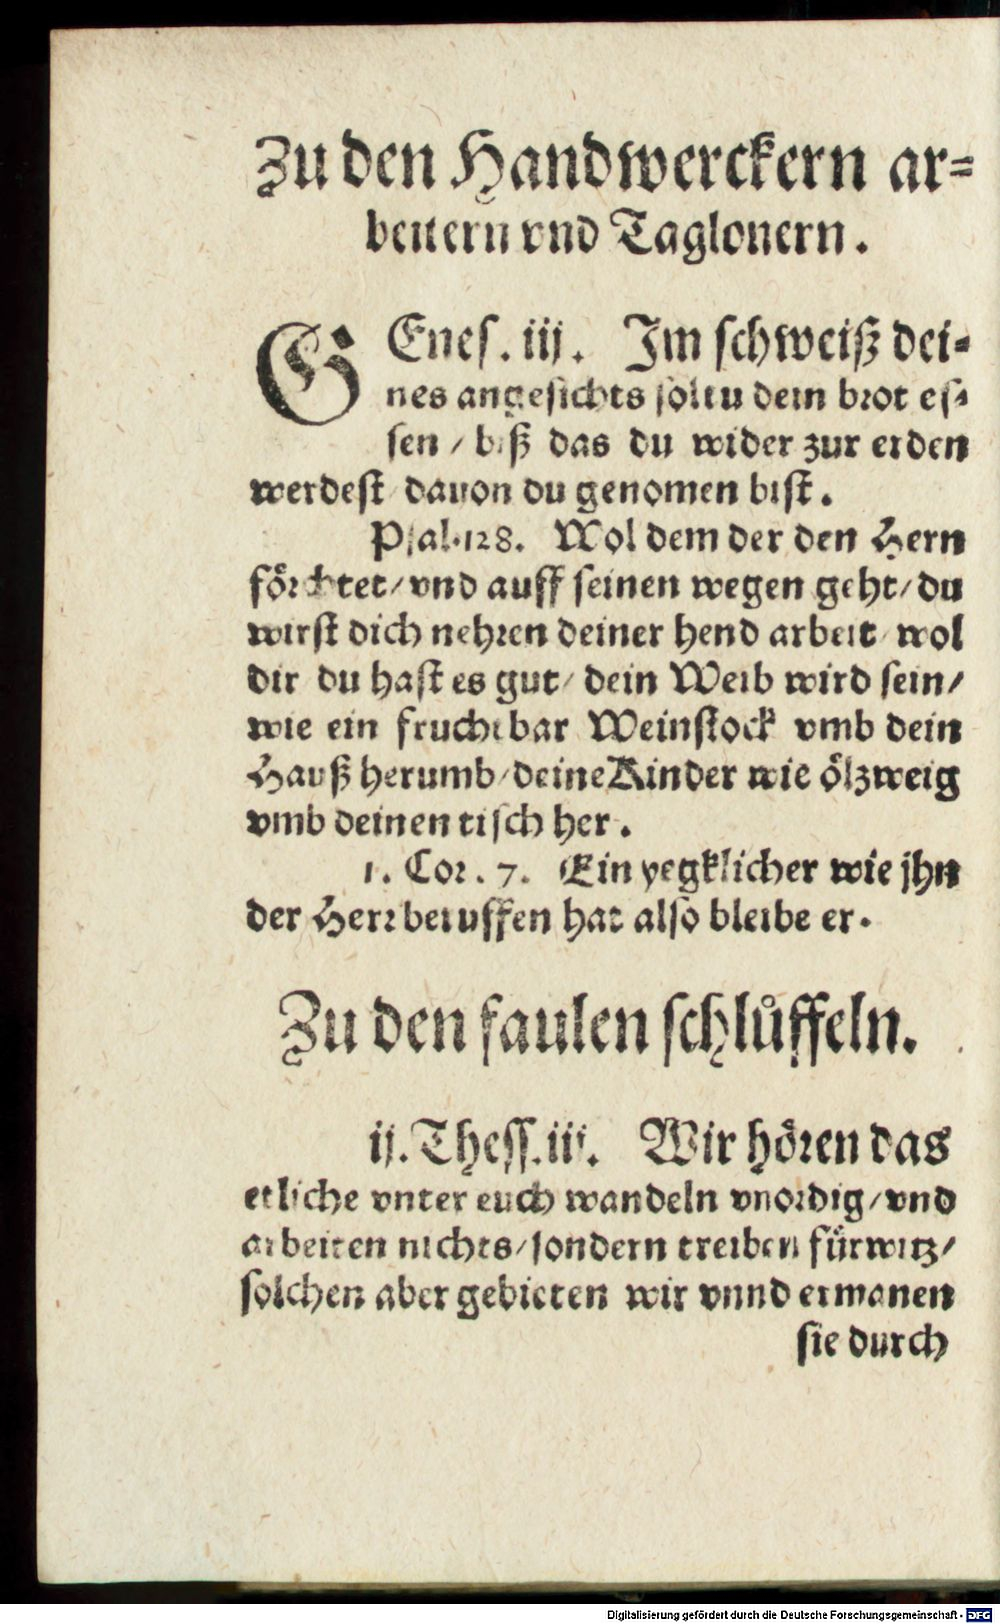 Zu den Handwerckern ar-
beitern vnd Taglonern.
GEnes. iij. Im schweiß dei-
nes angesichts soltu dein brot es-
sen / biß das du wider zur erden
werdest / dauon du genomen bist.
Psal. 128. Wol dem der den Hern
förchtet / vnd auff seinen wegen geht / du
wirst dich nehren deiner hend arbeit / wol
dir du hast es gut / dein Weib wird sein /
wie ein fruchtbar Weinstock vmb dein
Hauß herumb / deine Kinder wie ölzweig
vmb deinen tisch her.
1. Cor. 7. Ein yegklicher wie jhn
der Herr beruffen hat also bleibe er.
Zu den faulen schlůffeln.
ij. Thess. iij. Wir hören das
etliche vnter euch wandeln vnordig / vnd
arbeiten nichts / sondern treiben fürwitz /
solchen aber gebieten wir vnnd ermanen
sie durch
Digitalisierung gefördert durch die Deutsche Forschungsgemeinschaft - DFG